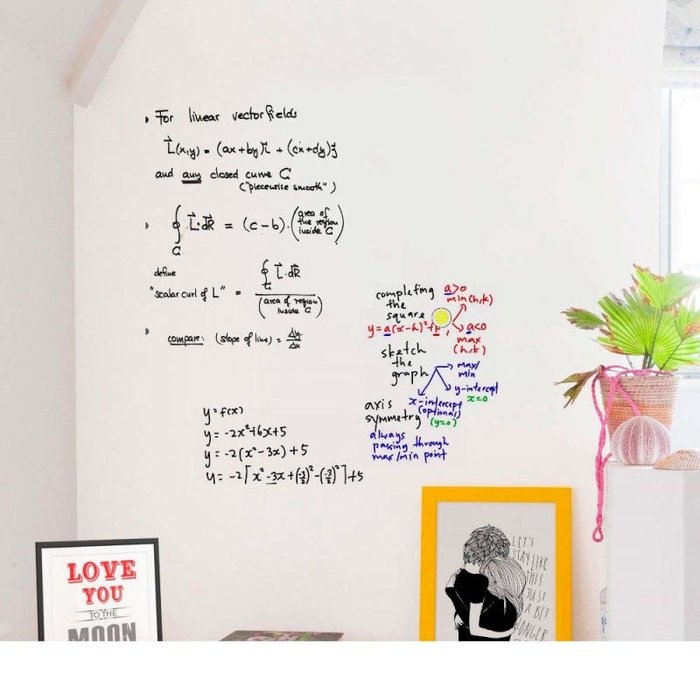 For linear vector fields
L(x,y) = (ax+by)i + (cx+dy)j
and any closed curve C
("piecewise smooth")
∮ L·dR = (c-b)·(area of the region inside C)
C
define
"scalar curl of L" = ∮ L·dR / (area of region inside C)
C
compare: (slope of line) = Δy/Δx
completing
the
square
a>0
min(h,k)
y=a(x-h)²+k
a<0
max
(h,k)
sketch
the
graph
max/
min
y-intercept
x=0
x-intercept
(optional)
(y=0)
axis
symmetry
always
passing through
max/min point
y=f(x)
y = -2x²+6x+5
y = -2(x²-3x)+5
y = -2[x²-3x+(-3/2)²-(-3/2)²]+5
LOVE
YOU
TO THE
MOON
LET'S
STAY LIKE
THIS
JUST
A BIT
LONGER